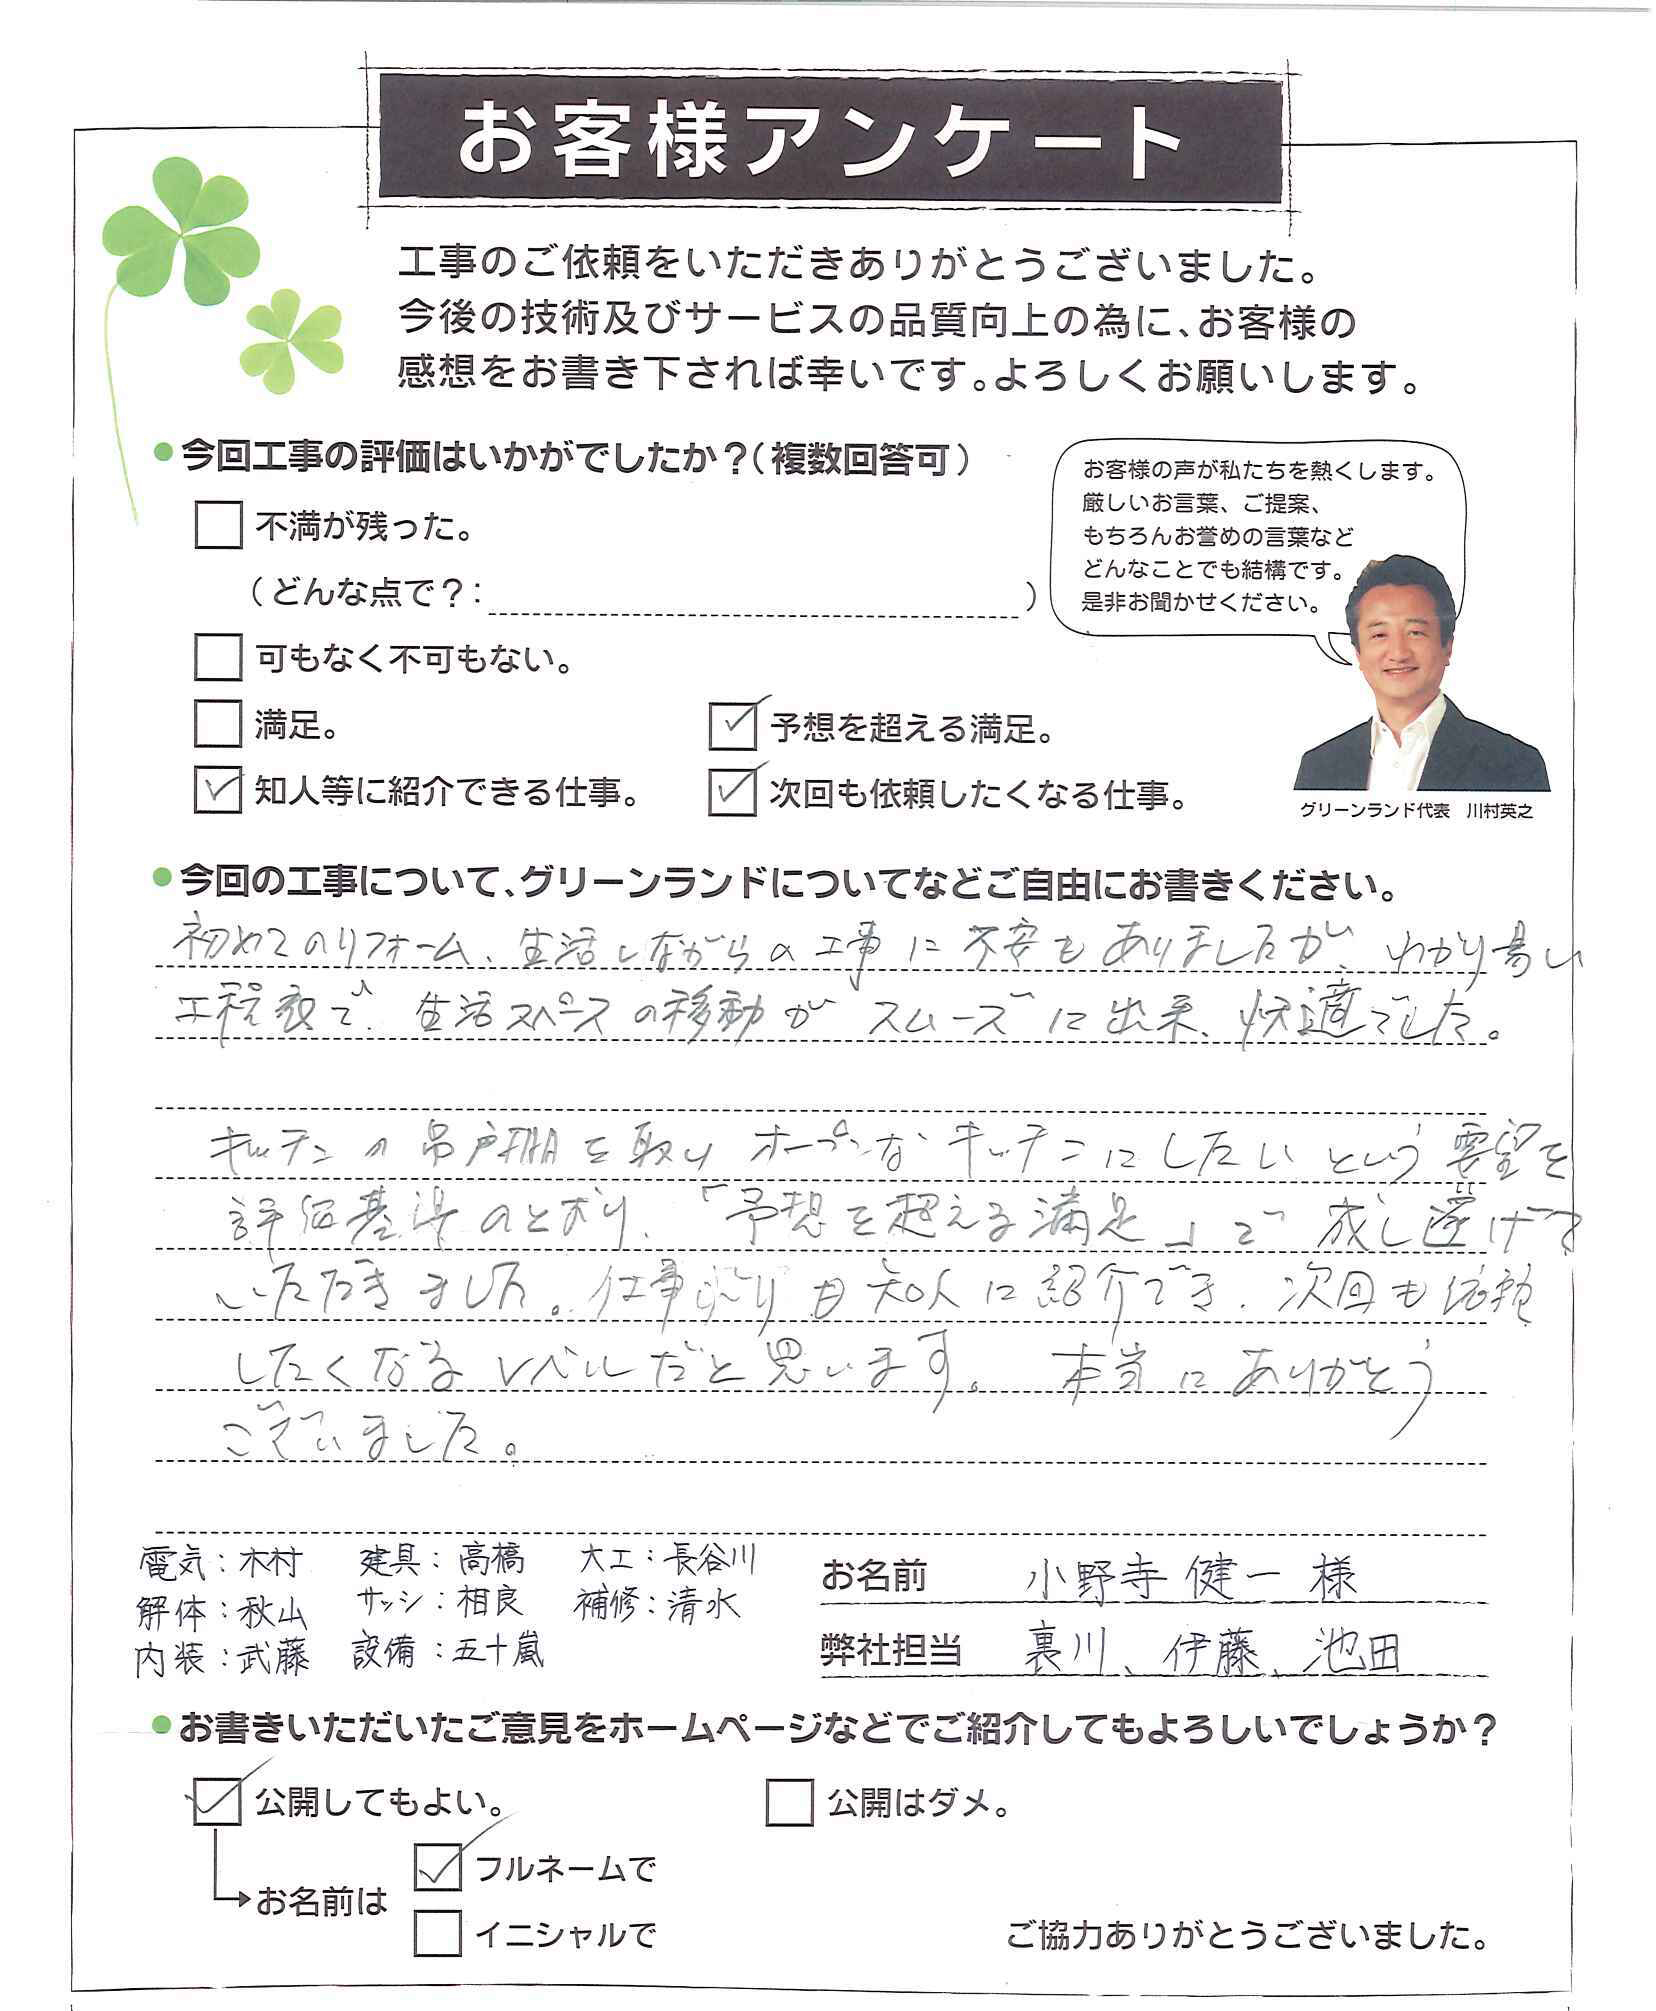 お客様アンケート
工事のご依頼をいただきありがとうございました。
今後の技術及びサービスの品質向上の為に、お客様の
感想をお書き下されば幸いです。よろしくお願いします。
今回工事の評価はいかがでしたか？（複数回答可）
不満が残った。
（どんな点で？：　　　）
可もなく不可もない。
満足。
予想を超える満足。
知人等に紹介できる仕事。
次回も依頼したくなる仕事。
お客様の声が私たちを熱くします。
厳しいお言葉、ご提案、
もちろんお誉めの言葉など
どんなことでも結構です。
是非お聞かせください。
グリーンランド代表　川村英之
今回の工事について、グリーンランドについてなどご自由にお書きください。
初めてのリフォーム、生活しながらの工事に不安もありましたが、わかり易い
工程表で、生活スペースの移動がスムーズに出来、快適でした。
キッチンの吊戸棚を取りオープンなキッチンにしたいという要望を
評価基準のとおり、「予想を超える満足」で成し遂げて
いただきました。仕事ぶりも知人に紹介でき、次回も依頼
したくなるレベルだと思います。本当にありがとう
ございました。
電気：木村　建具：高橋　大工：長谷川
解体：秋山　サッシ：相良　補修：清水
内装：武藤　設備：五十嵐
お名前　小野寺 健一 様
弊社担当　裏川、伊藤、池田
お書きいただいたご意見をホームページなどでご紹介してもよろしいでしょうか？
公開してもよい。
公開はダメ。
お名前は
フルネームで
イニシャルで
ご協力ありがとうございました。